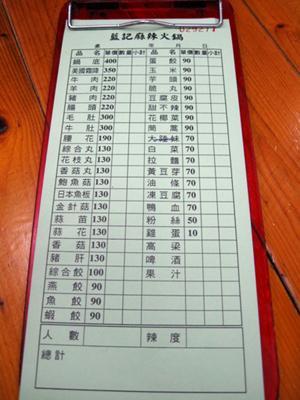 029271
藍記麻辣火鍋
桌 年 月 日
品名 單價 數量 小計 品名 單價 數量 小計
鍋底 400 蛋餃 90
美國霜降 350 玉米 90
牛肉 220 芋頭 90
羊肉 220 脆丸 90
豬肉 220 豆腐皮 90
腸頭 220 甜不辣 90
毛肚 300 花椰菜 90
牛肚 300 茼蒿 90
腰花 190 大陸妹 70
綜合丸 130 白菜 70
花枝丸 130 拉麵 70
香菇丸 130 黃豆芽 70
鮑魚菇 130 油條 70
日本魚板 130 凍豆腐 70
金針菇 130 鴨血 70
蒜苗 130 粉絲 50
蒜花 130 雞蛋 10
香菇 130 高粱
豬肝 130 啤酒
綜合餃 100 果汁
燕餃 90
魚餃 90
蝦餃 90
人數 辣度
總計